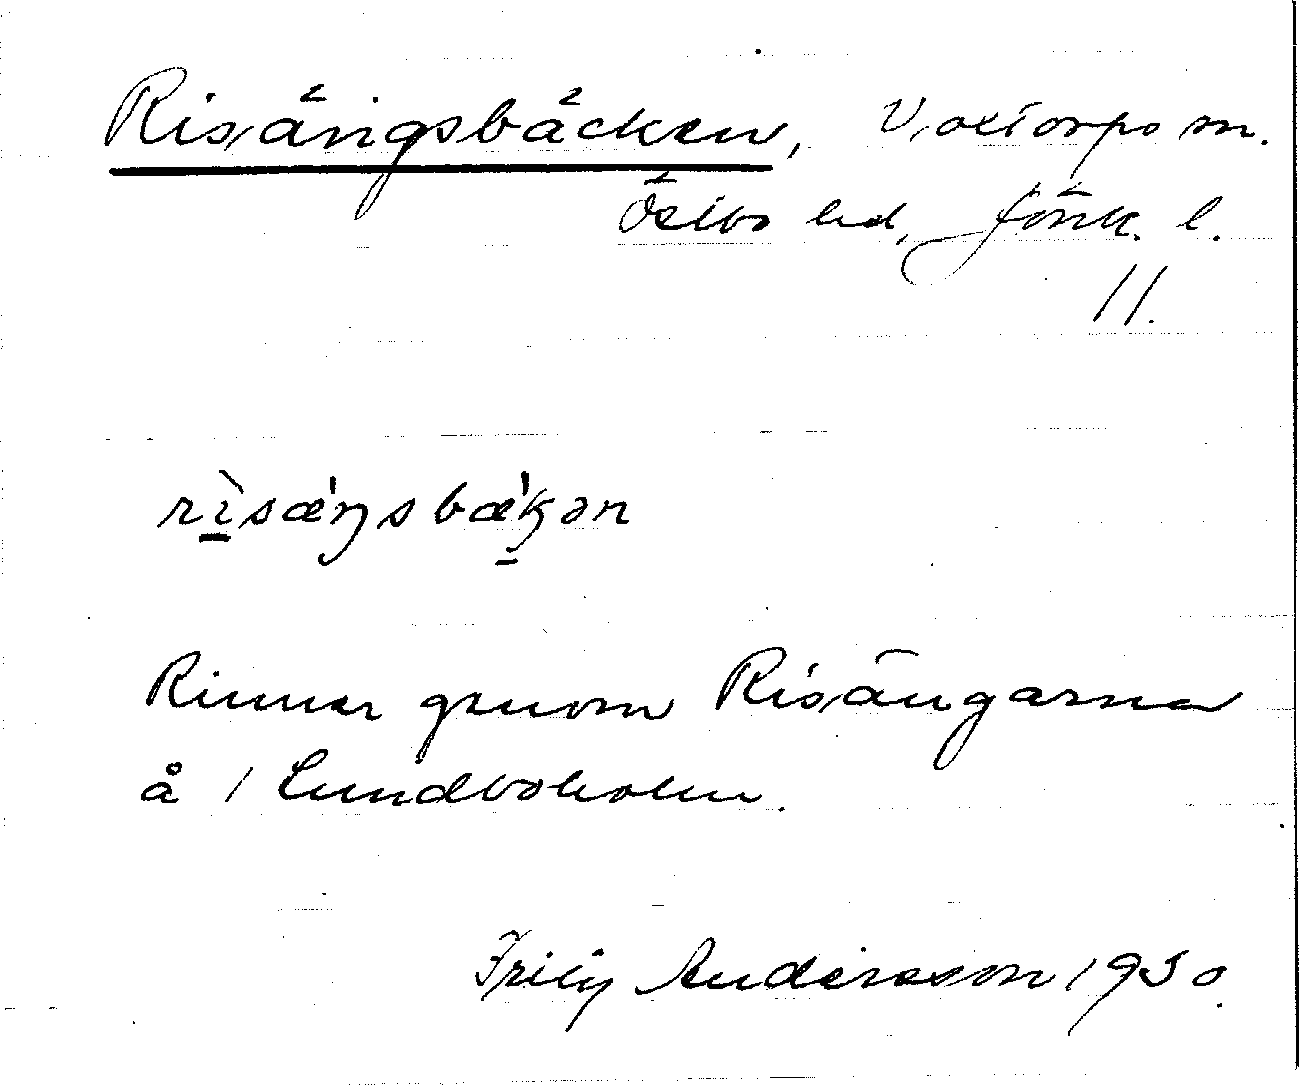 Risängsbäcken, Voxtorps sn.
Östbo hd, Jönk. l.
11.
rìsæ'ŋsbæ'kən
Rinner genom Risängarna
å 1 Lundboholm.
Andersson 1930.